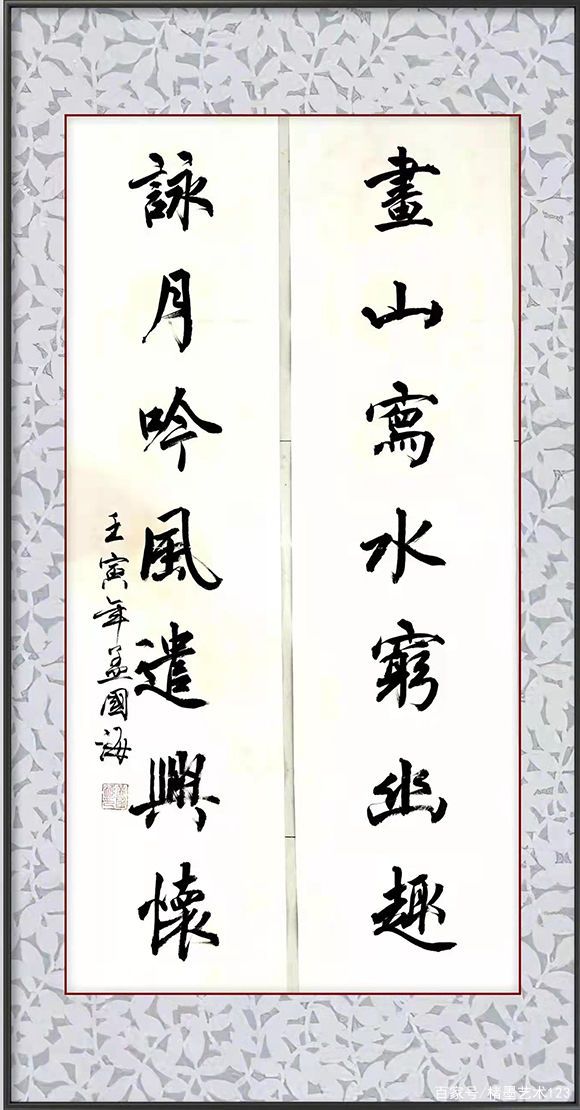 畫山寫水窮幽趣
詠月吟風遣興懷
壬寅年孟國海
百家号/楮墨艺术123